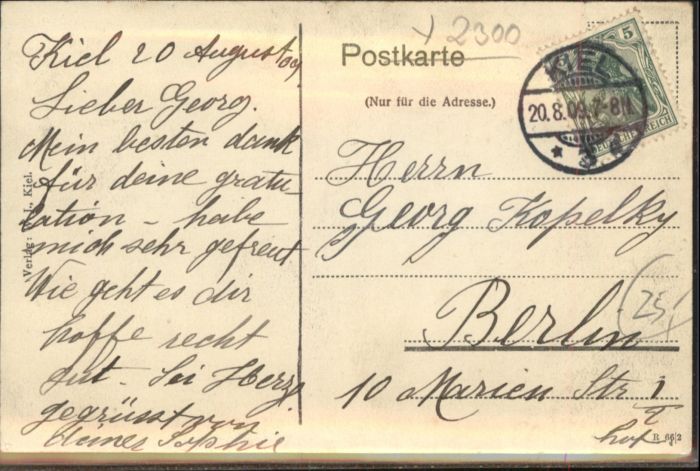 Kiel 20 August 09
Lieber Georg.
Mein besten dank
für deine gratu-
lation – habe
mich sehr gefreut
Wie geht es dir
hoffe recht
gut. Sei Herzl
gegrüsst von
deiner Sophie
Verlag: J., Kiel.
2300
Postkarte
(Nur für die Adresse.)
5
DEUTSCHES REICH
KIEL
20.8.09.7-8N.
* 3 a
Herrn
Georg Kopelky
Berlin
(25)
10 Marien Str 1
Hof
R 66/2